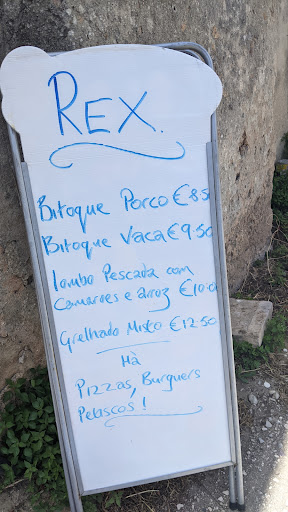 REX.
Bitoque Porco €8.5
Bitoque Vaca €9.50
Lombo Pescada com
Camaroes e arroz €10.0
Grelhado Misto €12.50
Hà
Pizzas, Burguers
Petiscos!